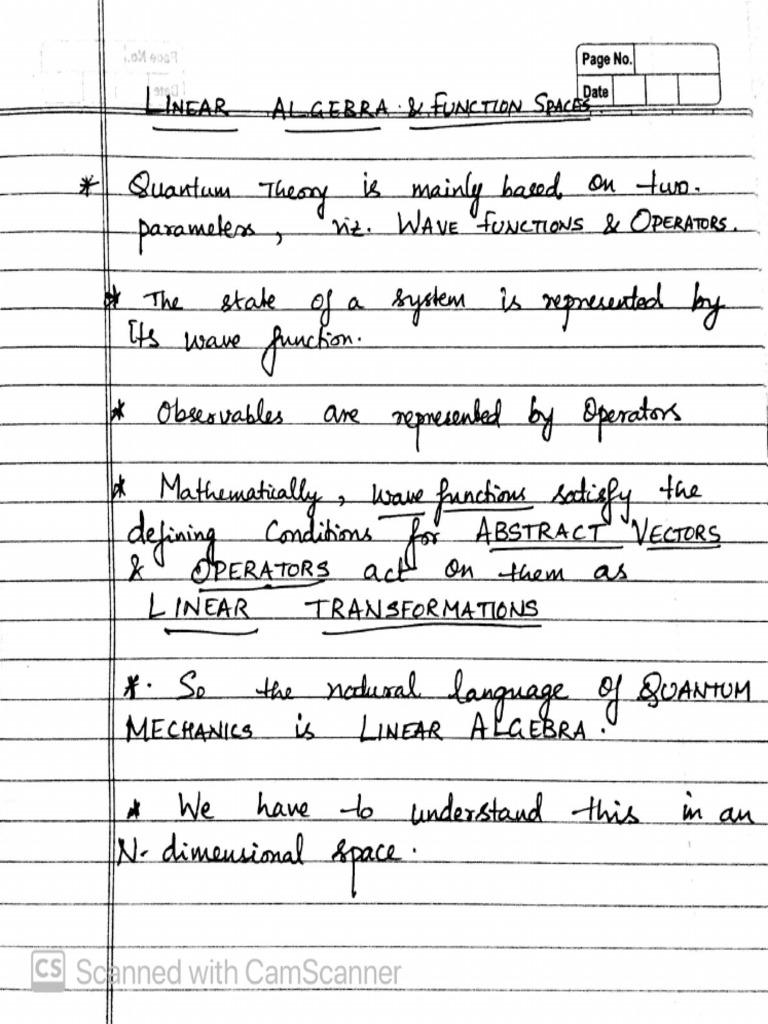 Page No.
Date
LINEAR ALGEBRA & FUNCTION SPACES
* Quantum Theory is mainly based on two.
parameters, viz. WAVE FUNCTIONS & OPERATORS.
* The state of a system is represented by
Its wave function.
* Observables are represented by Operators
* Mathematically, wave functions satisfy the
defining Conditions for ABSTRACT VECTORS
& OPERATORS act on them as
LINEAR TRANSFORMATIONS
*. So the natural language of QUANTUM
MECHANICS is LINEAR ALGEBRA.
* We have to understand this in an
N-dimensional space.
CS Scanned with CamScanner